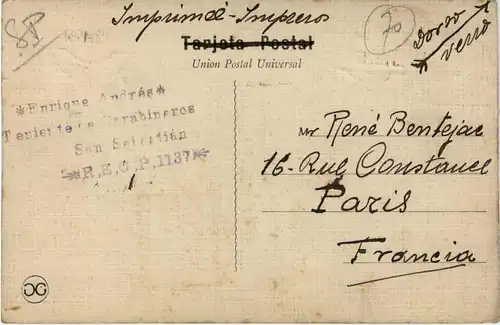 SP
Imprimé-Impreros
70
Dorso
verso
Tarjeta Postal
Union Postal Universal
*Enrique Andrés*
Teniente Carabineros
San Sebastián
*R.E.O.P.1137*
Mr René Bentejac
16-Rue Constance
Paris
Francia